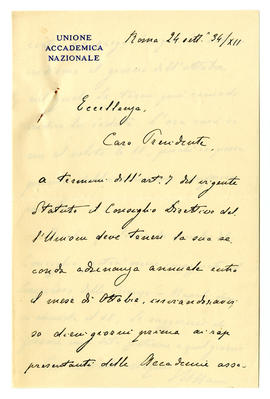 UNIONE
ACCADEMICA
NAZIONALE
Roma 24 sett. 34/XII
Eccellenza,
Caro Presidente,
a termini dell'art. 7 del vigente
Statuto il Consiglio Direttivo del
l'Unione deve tenere la sua se
conda adunanza annuale entro
il mese di Ottobre, invitandone avvi
so dieci giorni prima ai rap
presentanti delle Accademie asso-